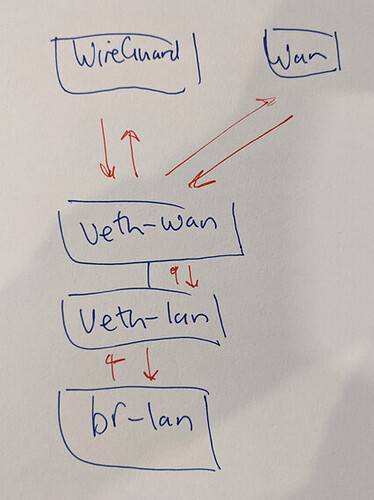 WireGuard
Wan
veth-wan
veth-lan
br-lan